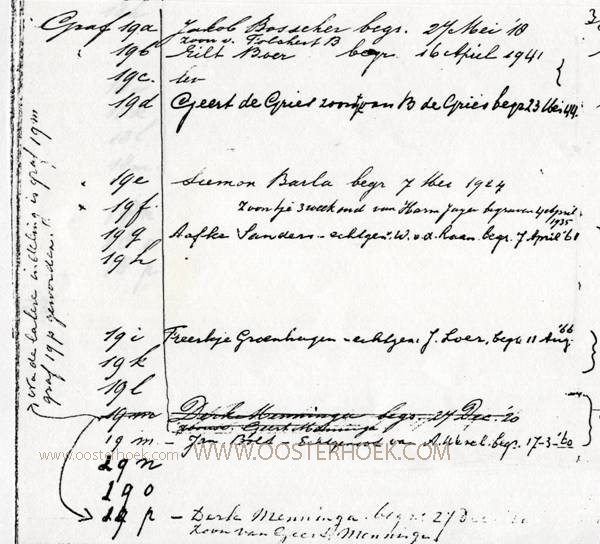 Graf 19a Jakob Bosscher begr. 27 Mei '18
zoon v. Folchert B
19b Eilt Boer begr 16 April 1941
19c. lev
19d Geert de Gries zoontje van B de Gries begr 23 Mei 44.
19e Siemon Barla begr 7 Mei 1924
19f. Zoontje 3 weken oud van Harm Jager begraven 4 April 1935
19g Aafke Sanders - echtgen. W. v.d. Kaan. begr. 7 April '61
19h
19i Freerkje Groenhagen - echtgen: J. Loer, begr. 11 Aug. '66
19k
19l
19m Derk Menninga begr. 27 Dec. '20
zoon v. Geert Menninga
19 m. - Jan Bolt - Echtgenoot van A. begr. 17-3-'60
www.oosterhoek.com WWW.OOSTERHOEK.COM
19n
19o
19p - Derk Menninga. begr. 27 Dec. '20
zoon van Geert Menninga
Van de latere indeling is graf 19m
graf 19p geworden.